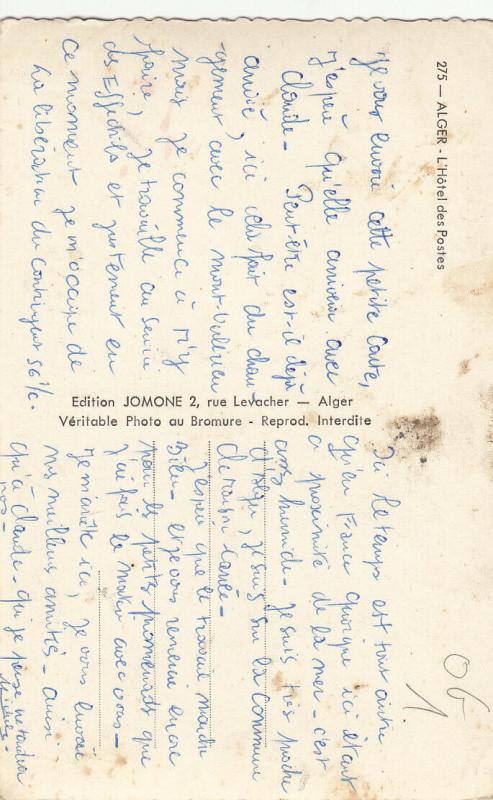 275 — ALGER - L'Hôtel des Postes
Je vous envoie cette petite carte,
J'espère qu'elle arrivera avec
Claude - Peut-être est-il déjà
arrivé, ici cela fait du chan-
gement avec le mont-Valérien
mais je commence à m'y
faire, je travaille au Service
des Effectifs et justement en
ce moment je m'occupe de
la libération du contingent 56 1/c.
Edition JOMONE 2, rue Levacher — Alger
Véritable Photo au Bromure - Reprod. Interdite
Ici le temps est tout autre
qu'en France quoique ici étant
à proximité de la mer - c'est
assez humide - Je suis très proche
d'Alger, je suis sur la commune
de maison carrée -
J'espère que le travail marche
bien - et je vous remercie encore
pour les petites promenades que
j'ai fais le matin avec vous -
Je m'arrête ici, je vous envoie
mes meilleurs amitiés - ainsi
qu'à Claude - qui je pense ne tardera
pas -
06
1